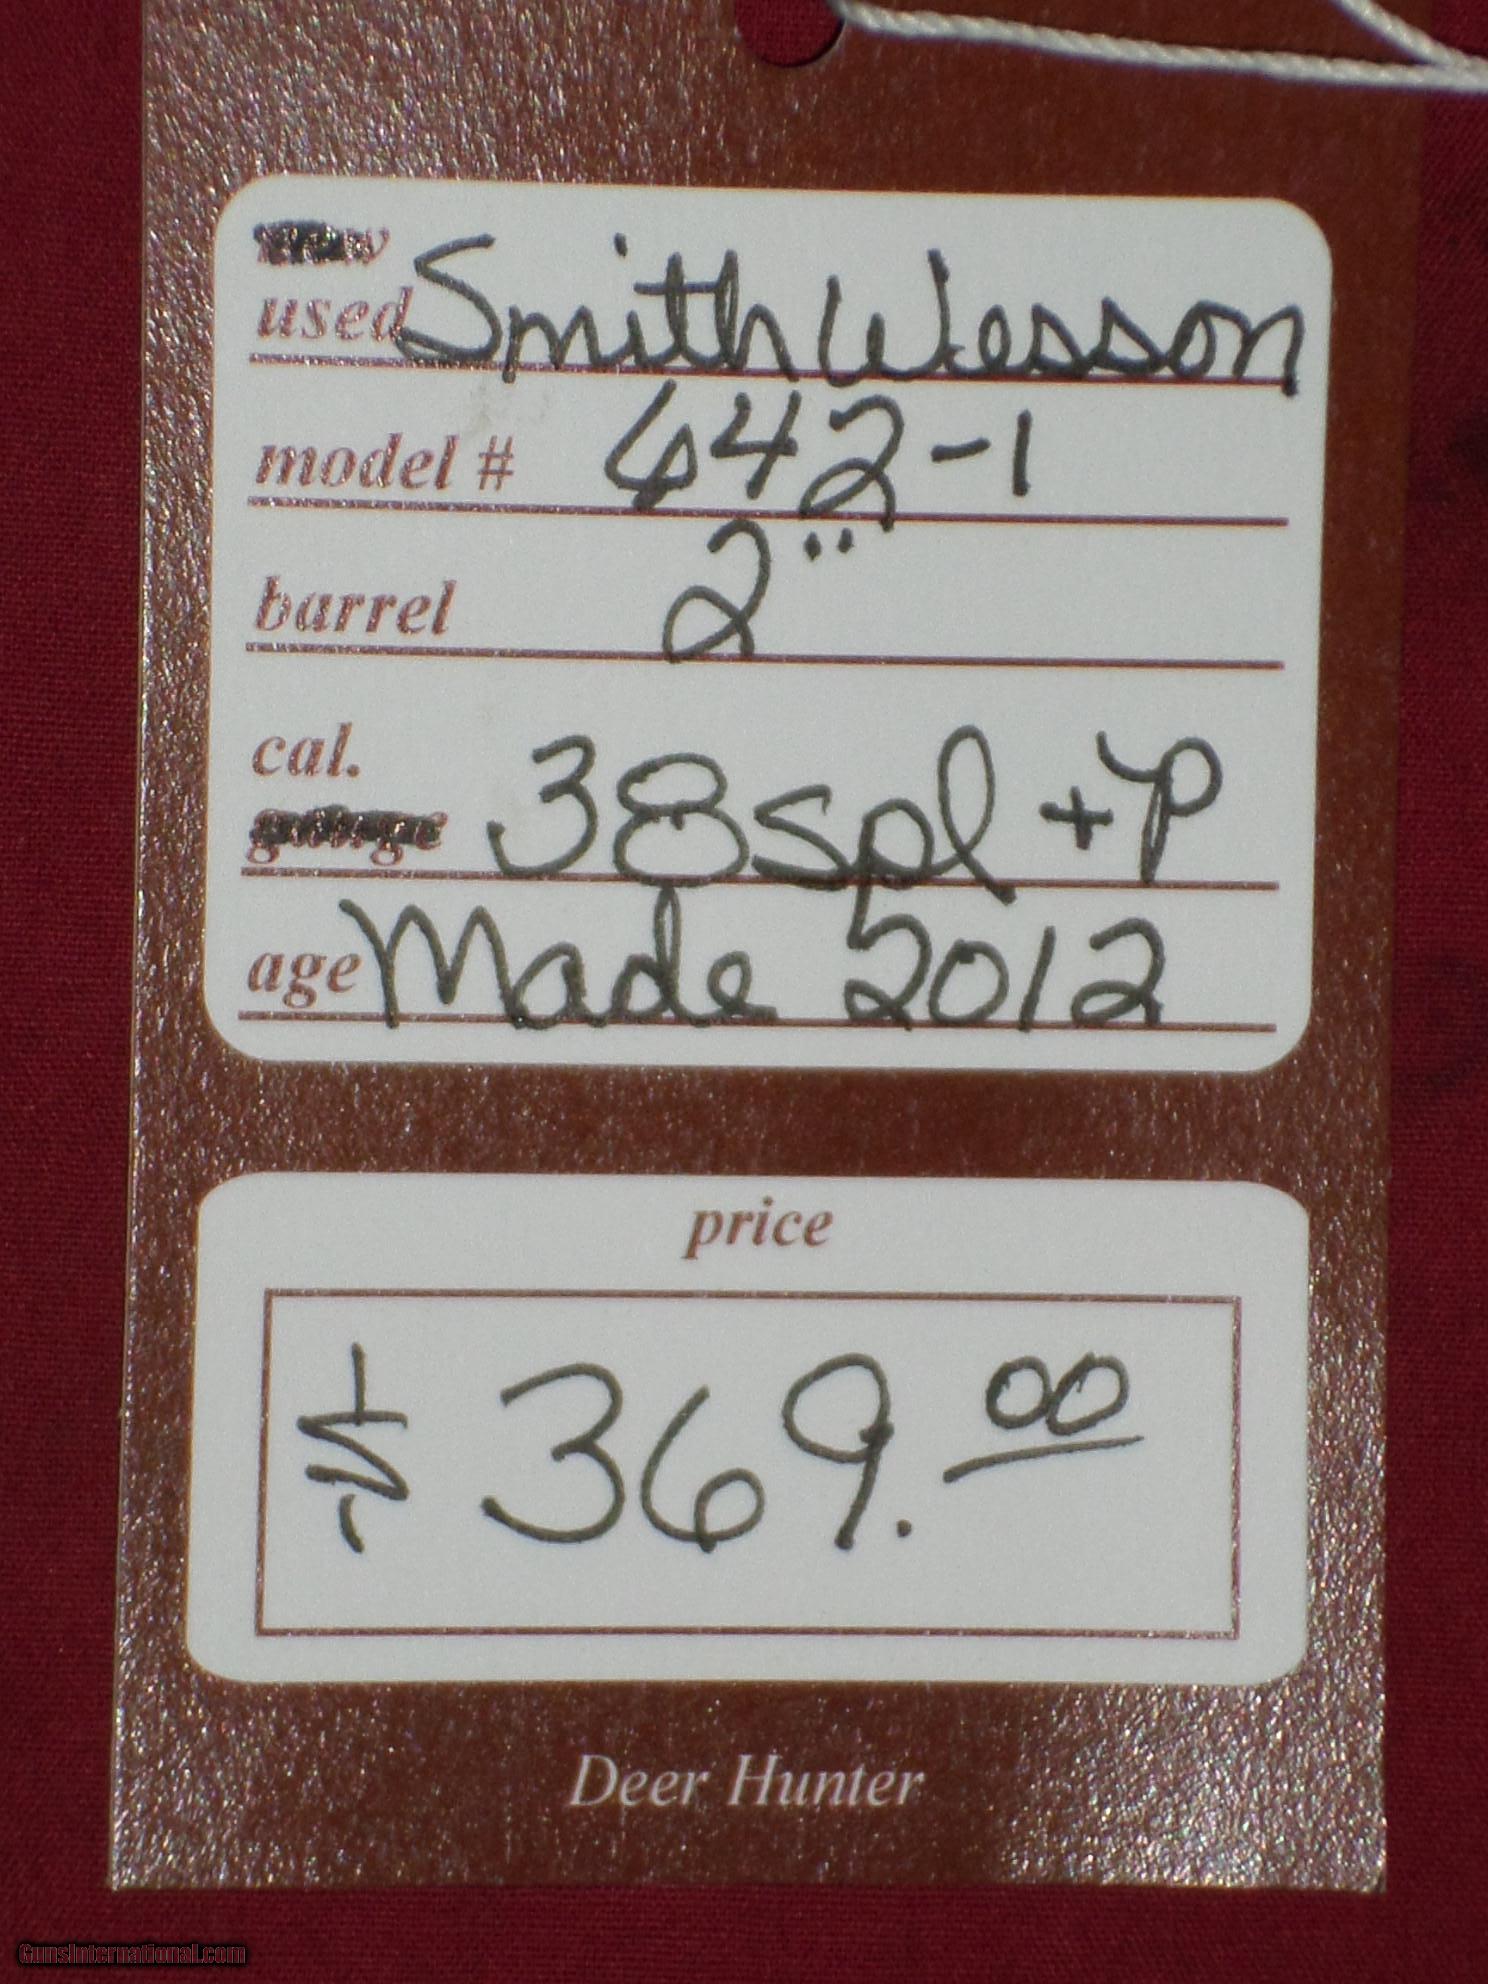 new
used Smith Wesson
model # 642-1
barrel 2"
cal. 38 spl +P
gauge
age Made 2012
price
$ 369.00
Deer Hunter
GunsInternational.com